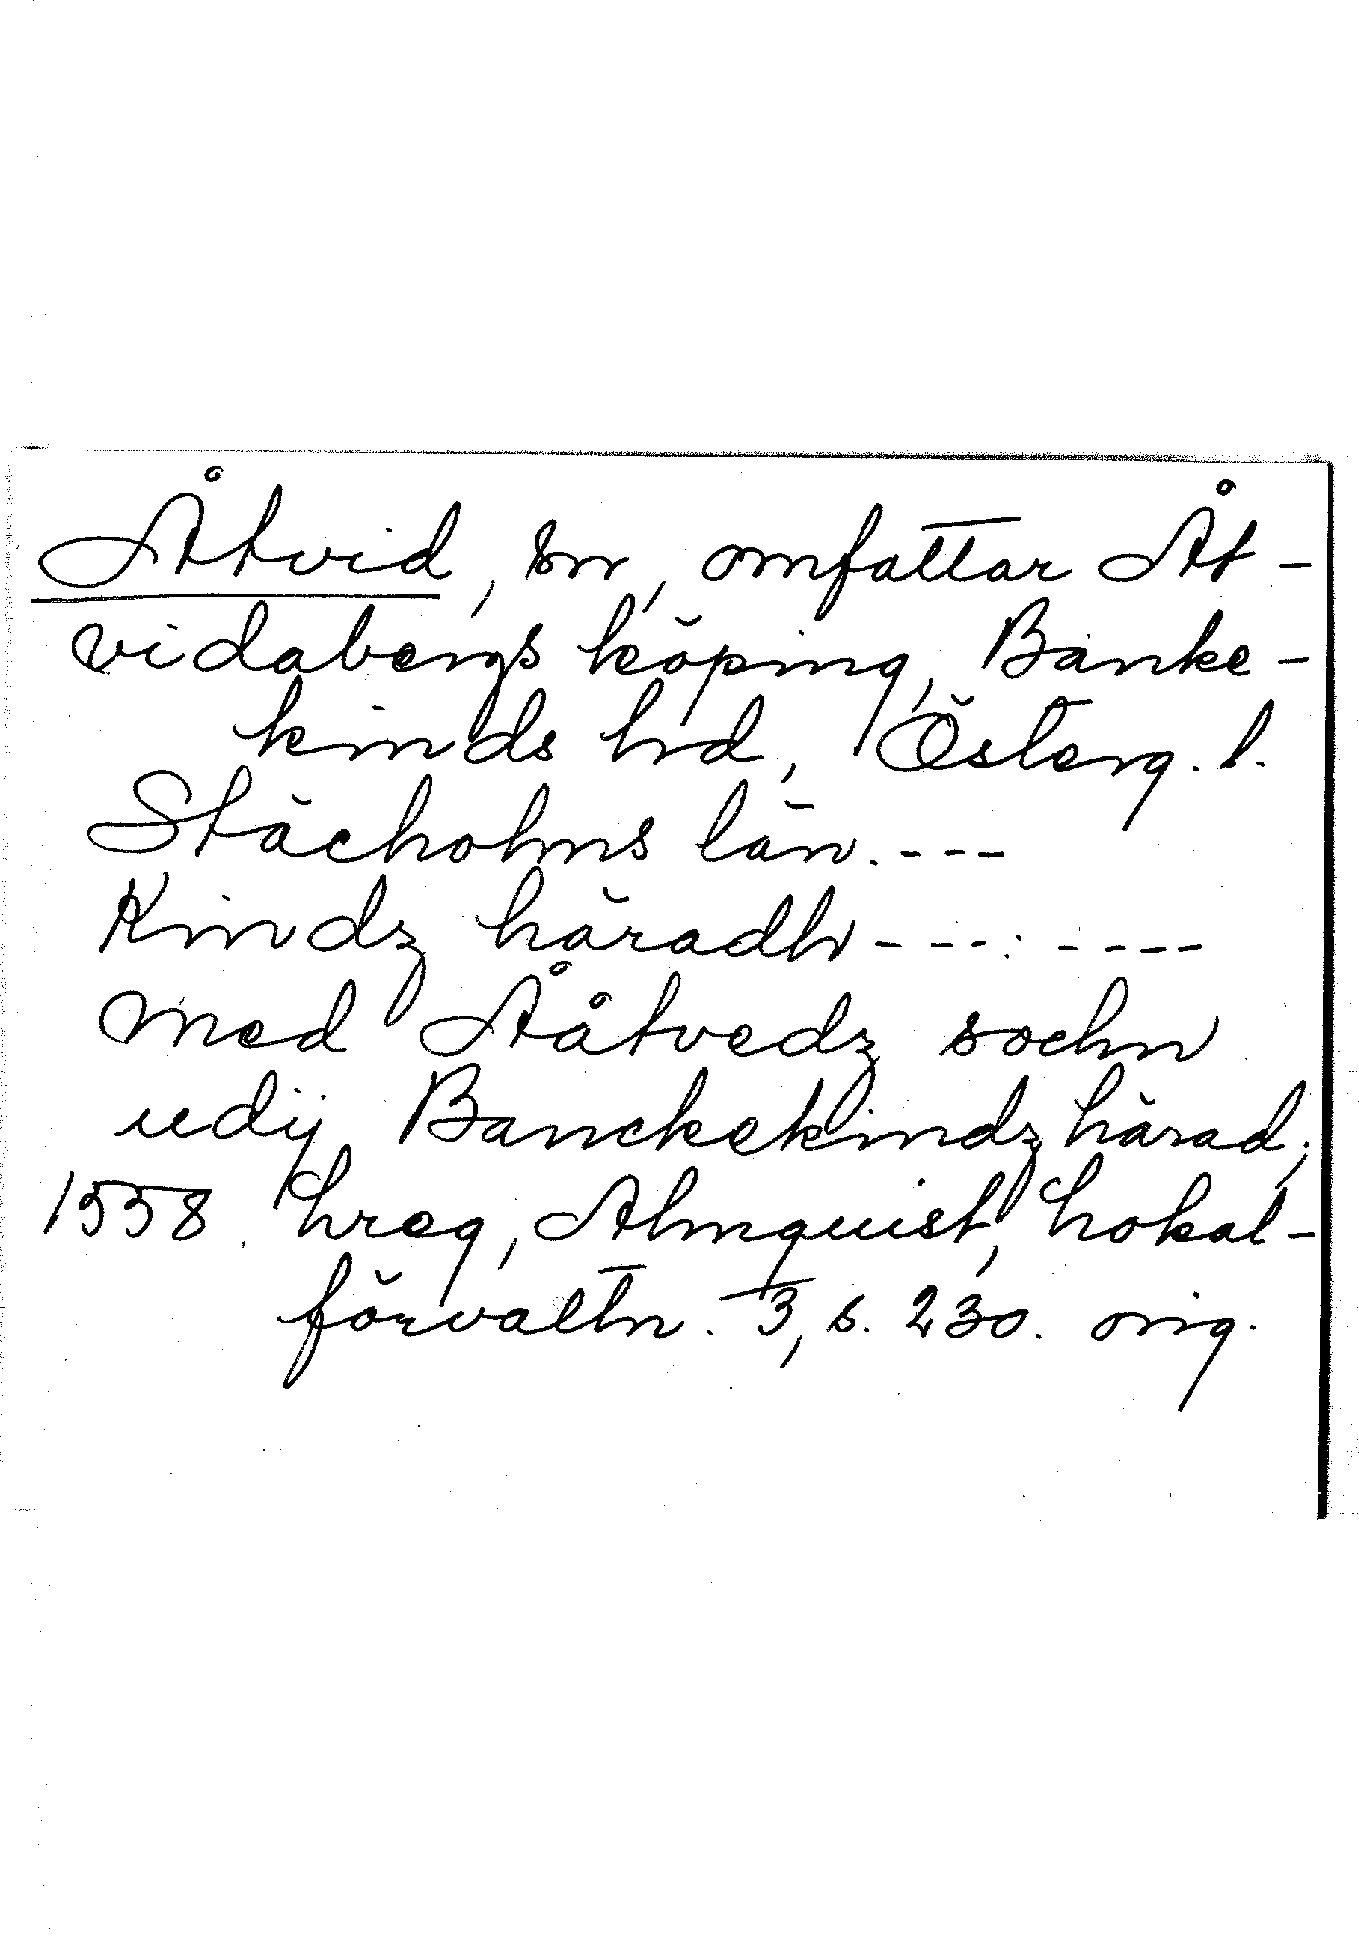 Åtvid, sn, omfattar Åt-
vidabergs köping, Banke-
kinds hrd, Österg. l.
Stächolms län. ---
Kindz häradh --- : ----
med Ååtvedz sochn
udij Banckekindz härad,
1558. hreg, Almquist, Lokal-
förvaltn. 3, s. 230. orig.